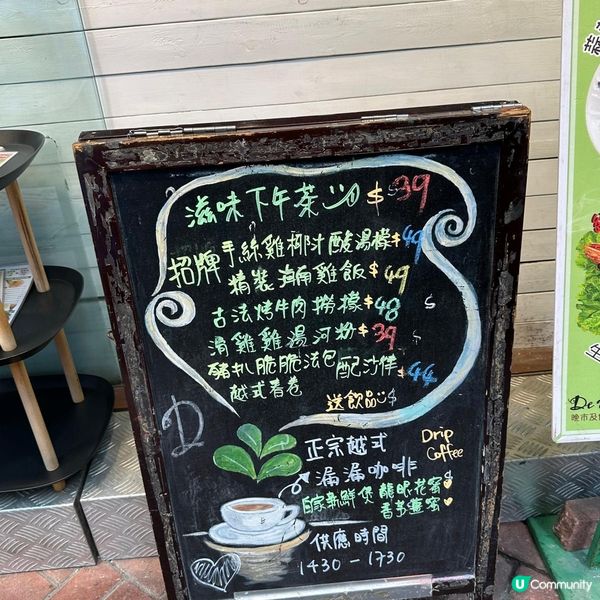 滋味下午茶 $39
招牌手絲雞椰汁酸湯檬 $49
精裝海南雞飯 $49
古法烤牛肉撈檬 $48
滑雞雞湯河粉 $39
豬扒脆脆法包配汁伴
越式春卷 $44
送飲品
D
正宗越式
滴滴咖啡
Drip
Coffee
自家新鮮煲龍眼花蜜
香茅薑蜜
供應時間
1430 - 1730
De
晚市及
U Community